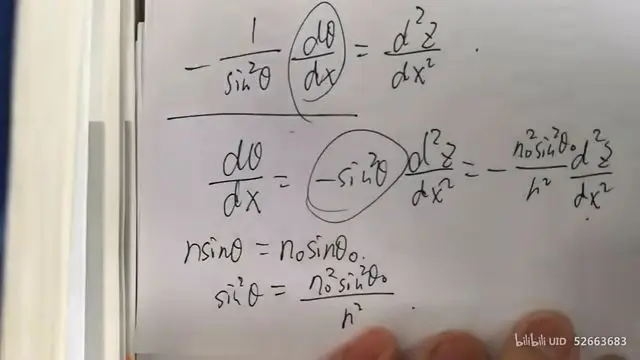 - 1/sin²θ dθ/dx = d²z/dx² .
dθ/dx = -sin²θ d²z/dx² = - n₀²sin²θ₀/n² d²z/dx² .
nsinθ = n₀sinθ₀.
sin²θ = n₀²sin²θ₀/n² .
bilibili UID 52663683